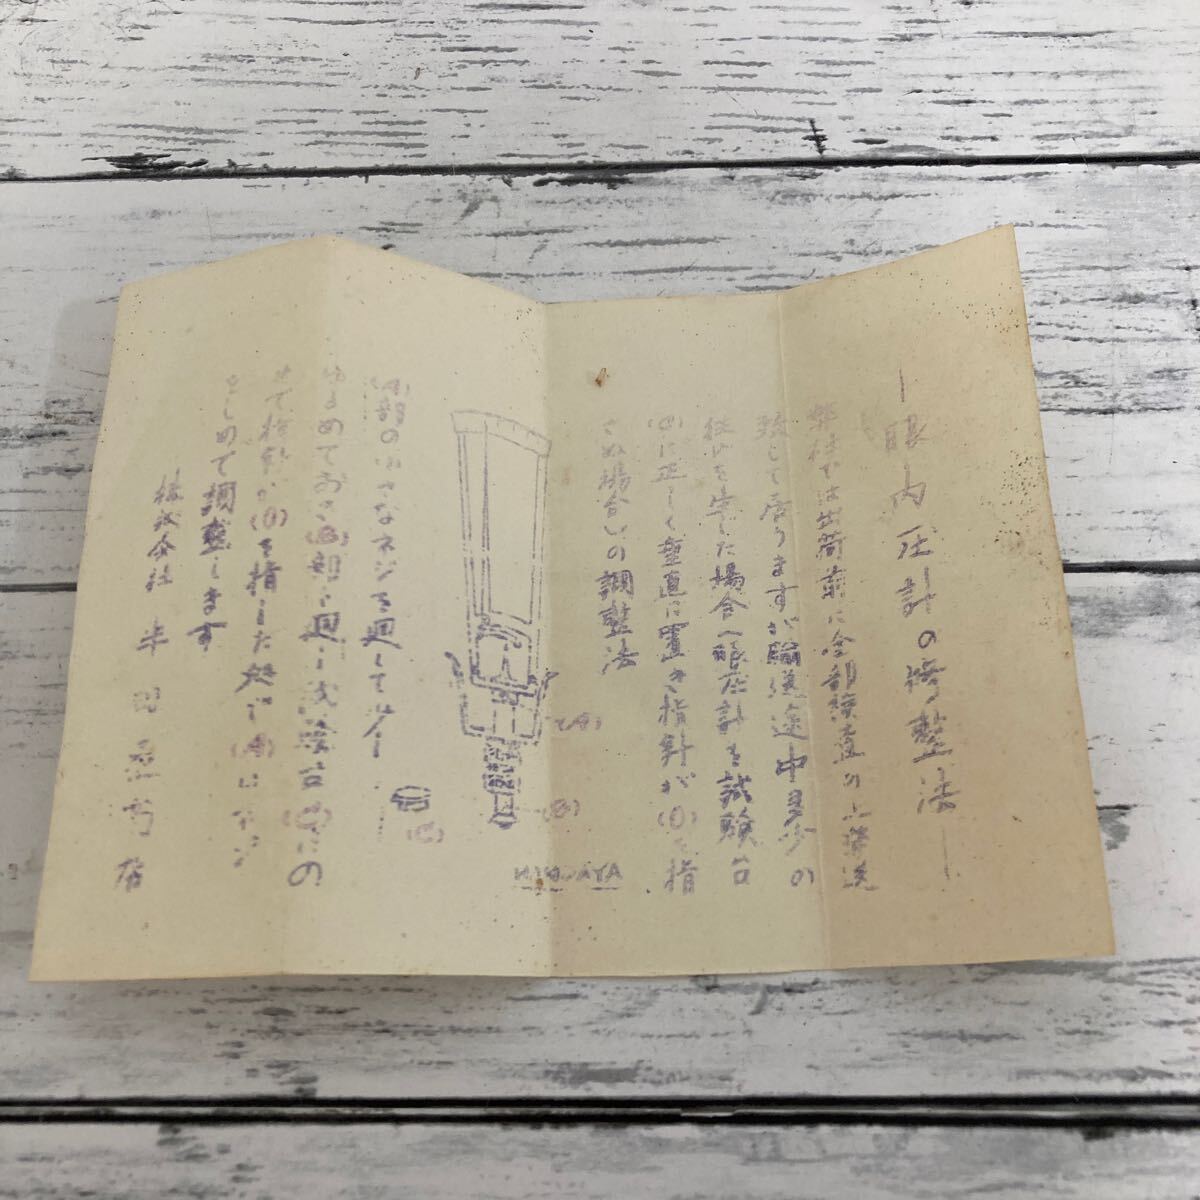 ―眼内圧計の調整法―
弊社では出荷前に全部検査の上発送
致して居りますが輸送途中多少の
狂いを生じた場合(眼圧計を試験台
(C)に正しく垂直に置き指針が(0)を指
さぬ場合)の調整法
(A)
(B)
(C)
HANDAYA
(A)部の小さなネジを廻して少し
ゆるめておき(B)部を廻し試験台(C)にの
せて指針が(0)を指した処で(A)のネジ
をしめて調整します
株式会社 半田屋商店